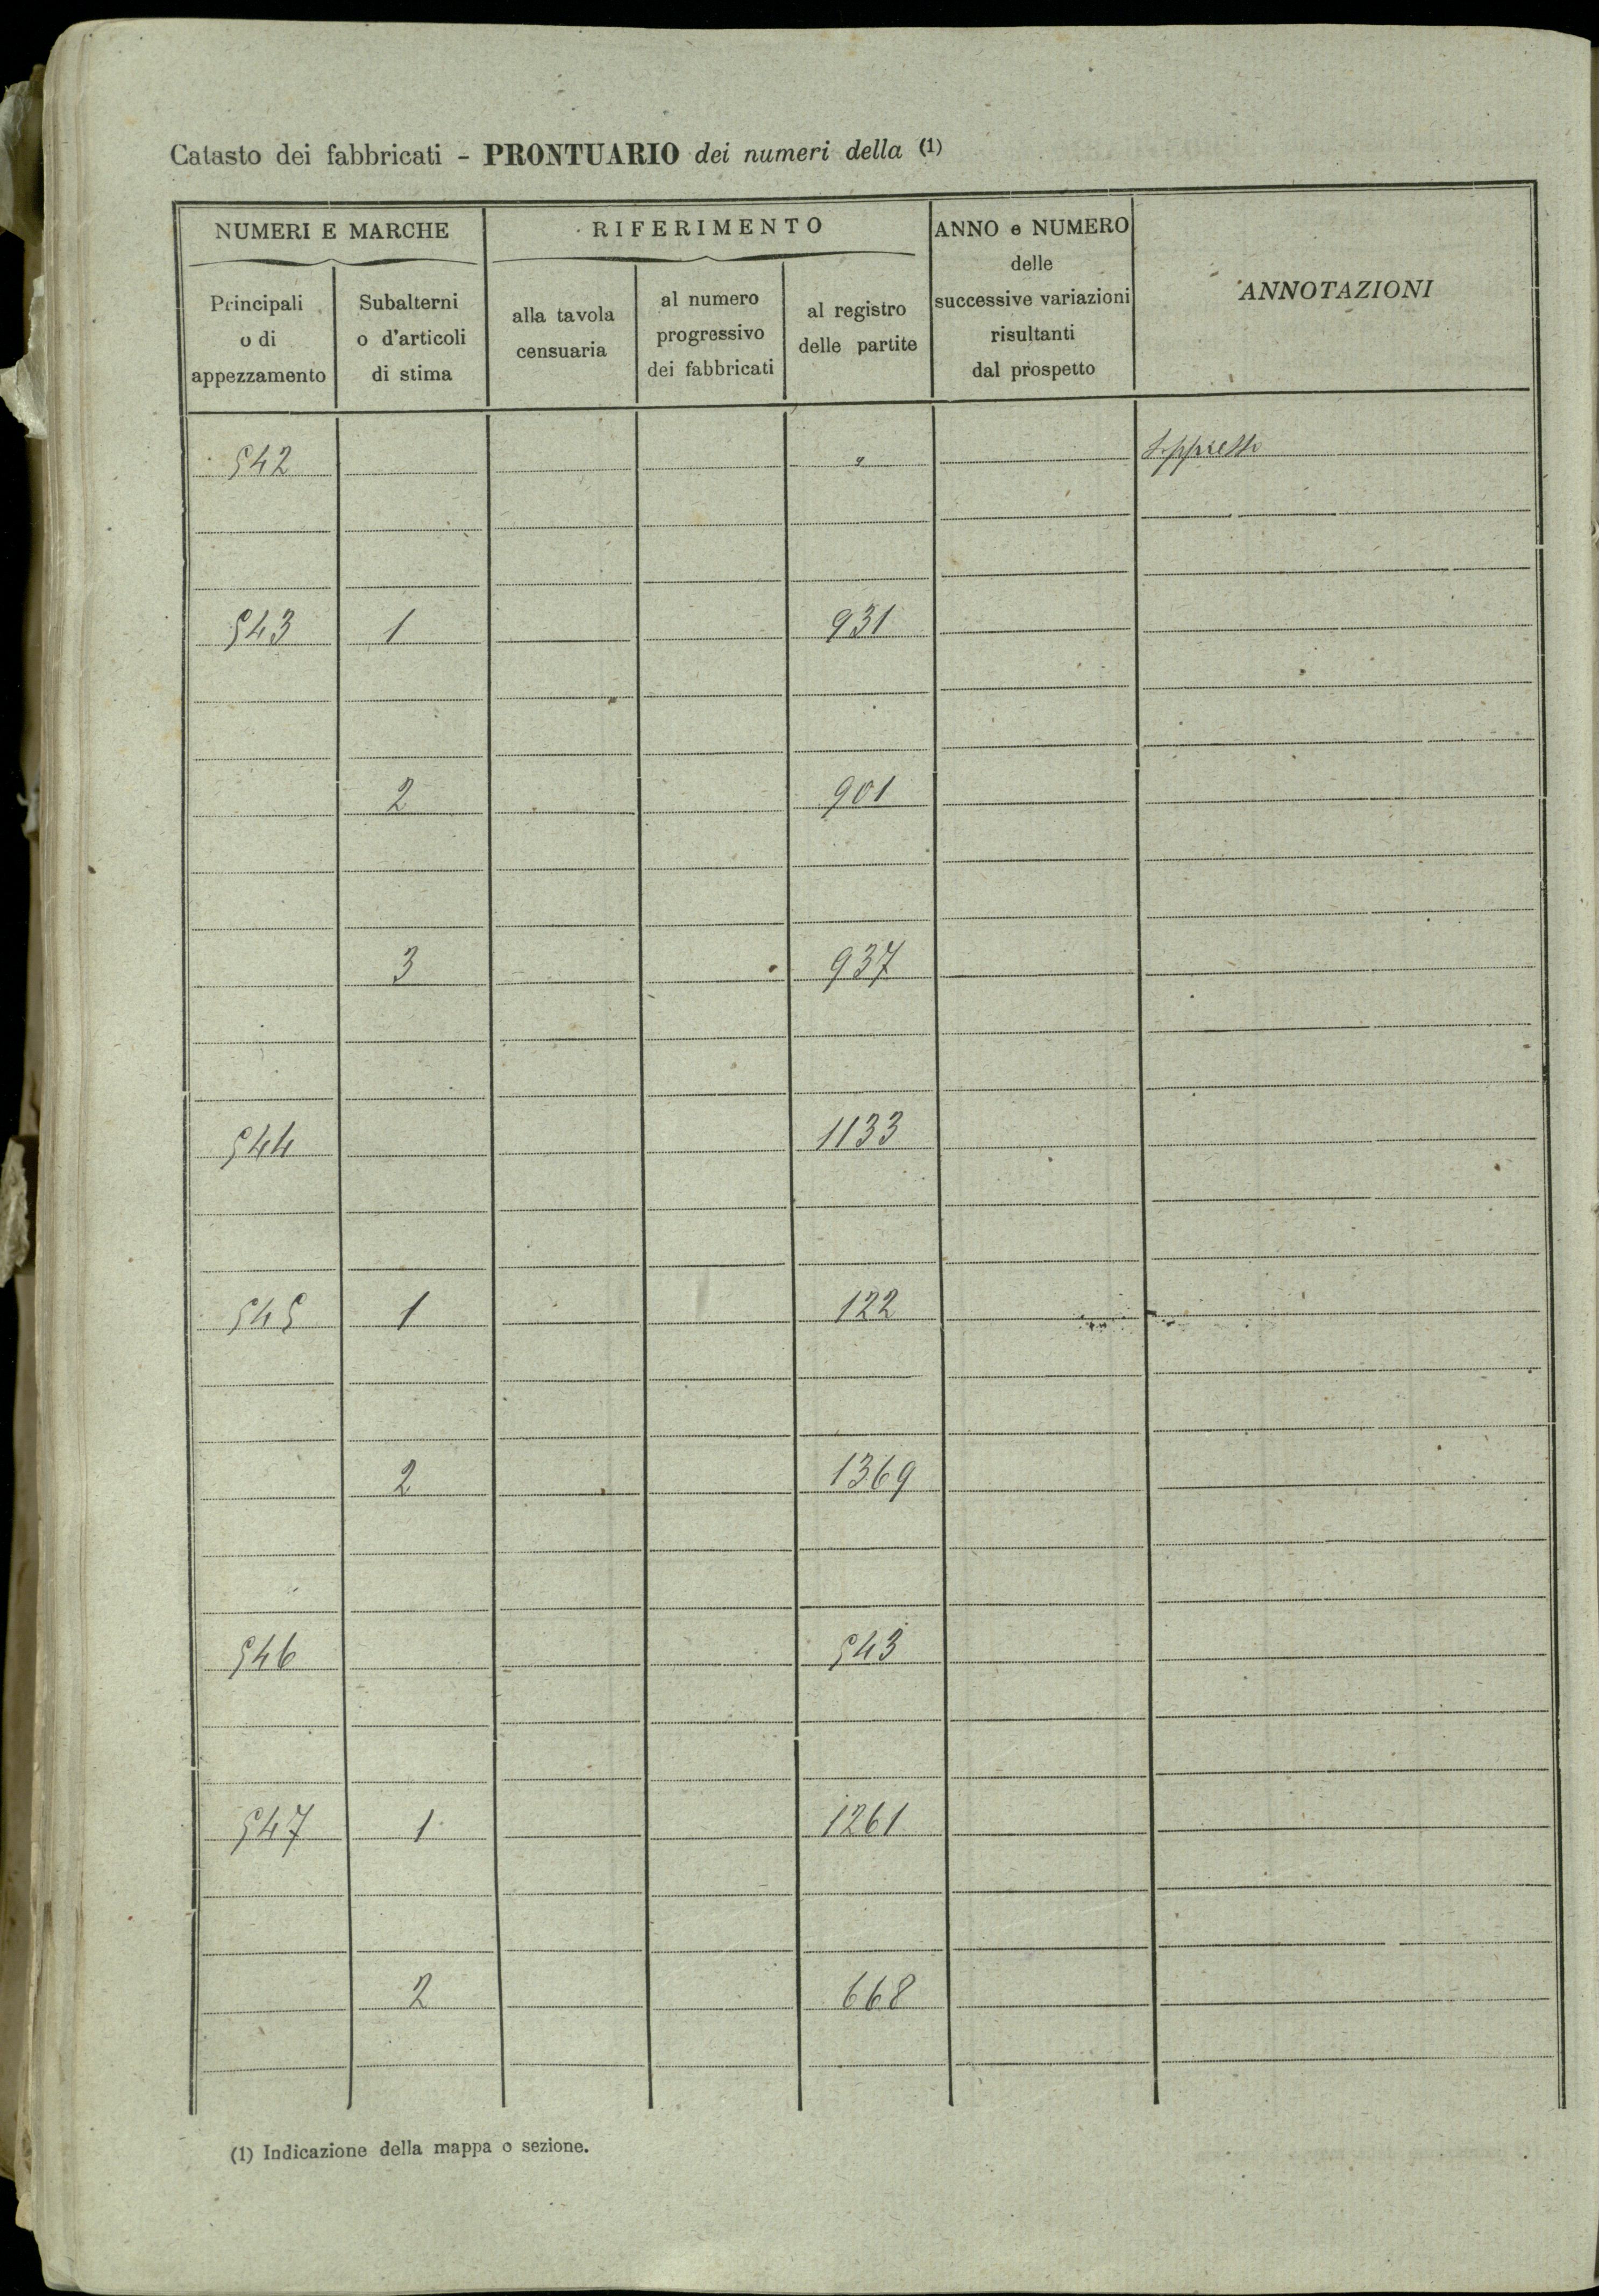 Catasto dei fabbricati - PRONTUARIO dei numeri della (1)
NUMERI E MARCHE
RIFERIMENTO
ANNO e NUMERO
delle
successive variazioni
risultanti
dal prospetto
ANNOTAZIONI
Principali
o di
appezzamento
Subalterni
o d'articoli
di stima
alla tavola
censuaria
al numero
progressivo
dei fabbricati
al registro
delle partite
542 " Soppresso
543 1 931
2 901
3 937
544 1133
545 1 122
2 1369
546 543
547 1 1261
2 668
(1) Indicazione della mappa o sezione.